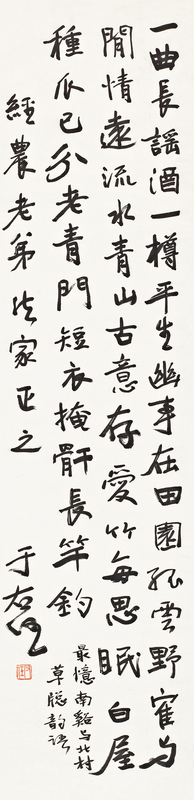 一曲長謡酒一樽平生幽事在田園孤雲野寉与
閒情遠流水青山古意存愛竹每思眠白屋
種瓜已分老青門短衣掩骭長竿釣
最憶南谿与北村
草牕韵语
經農老弟法家正之
于右任